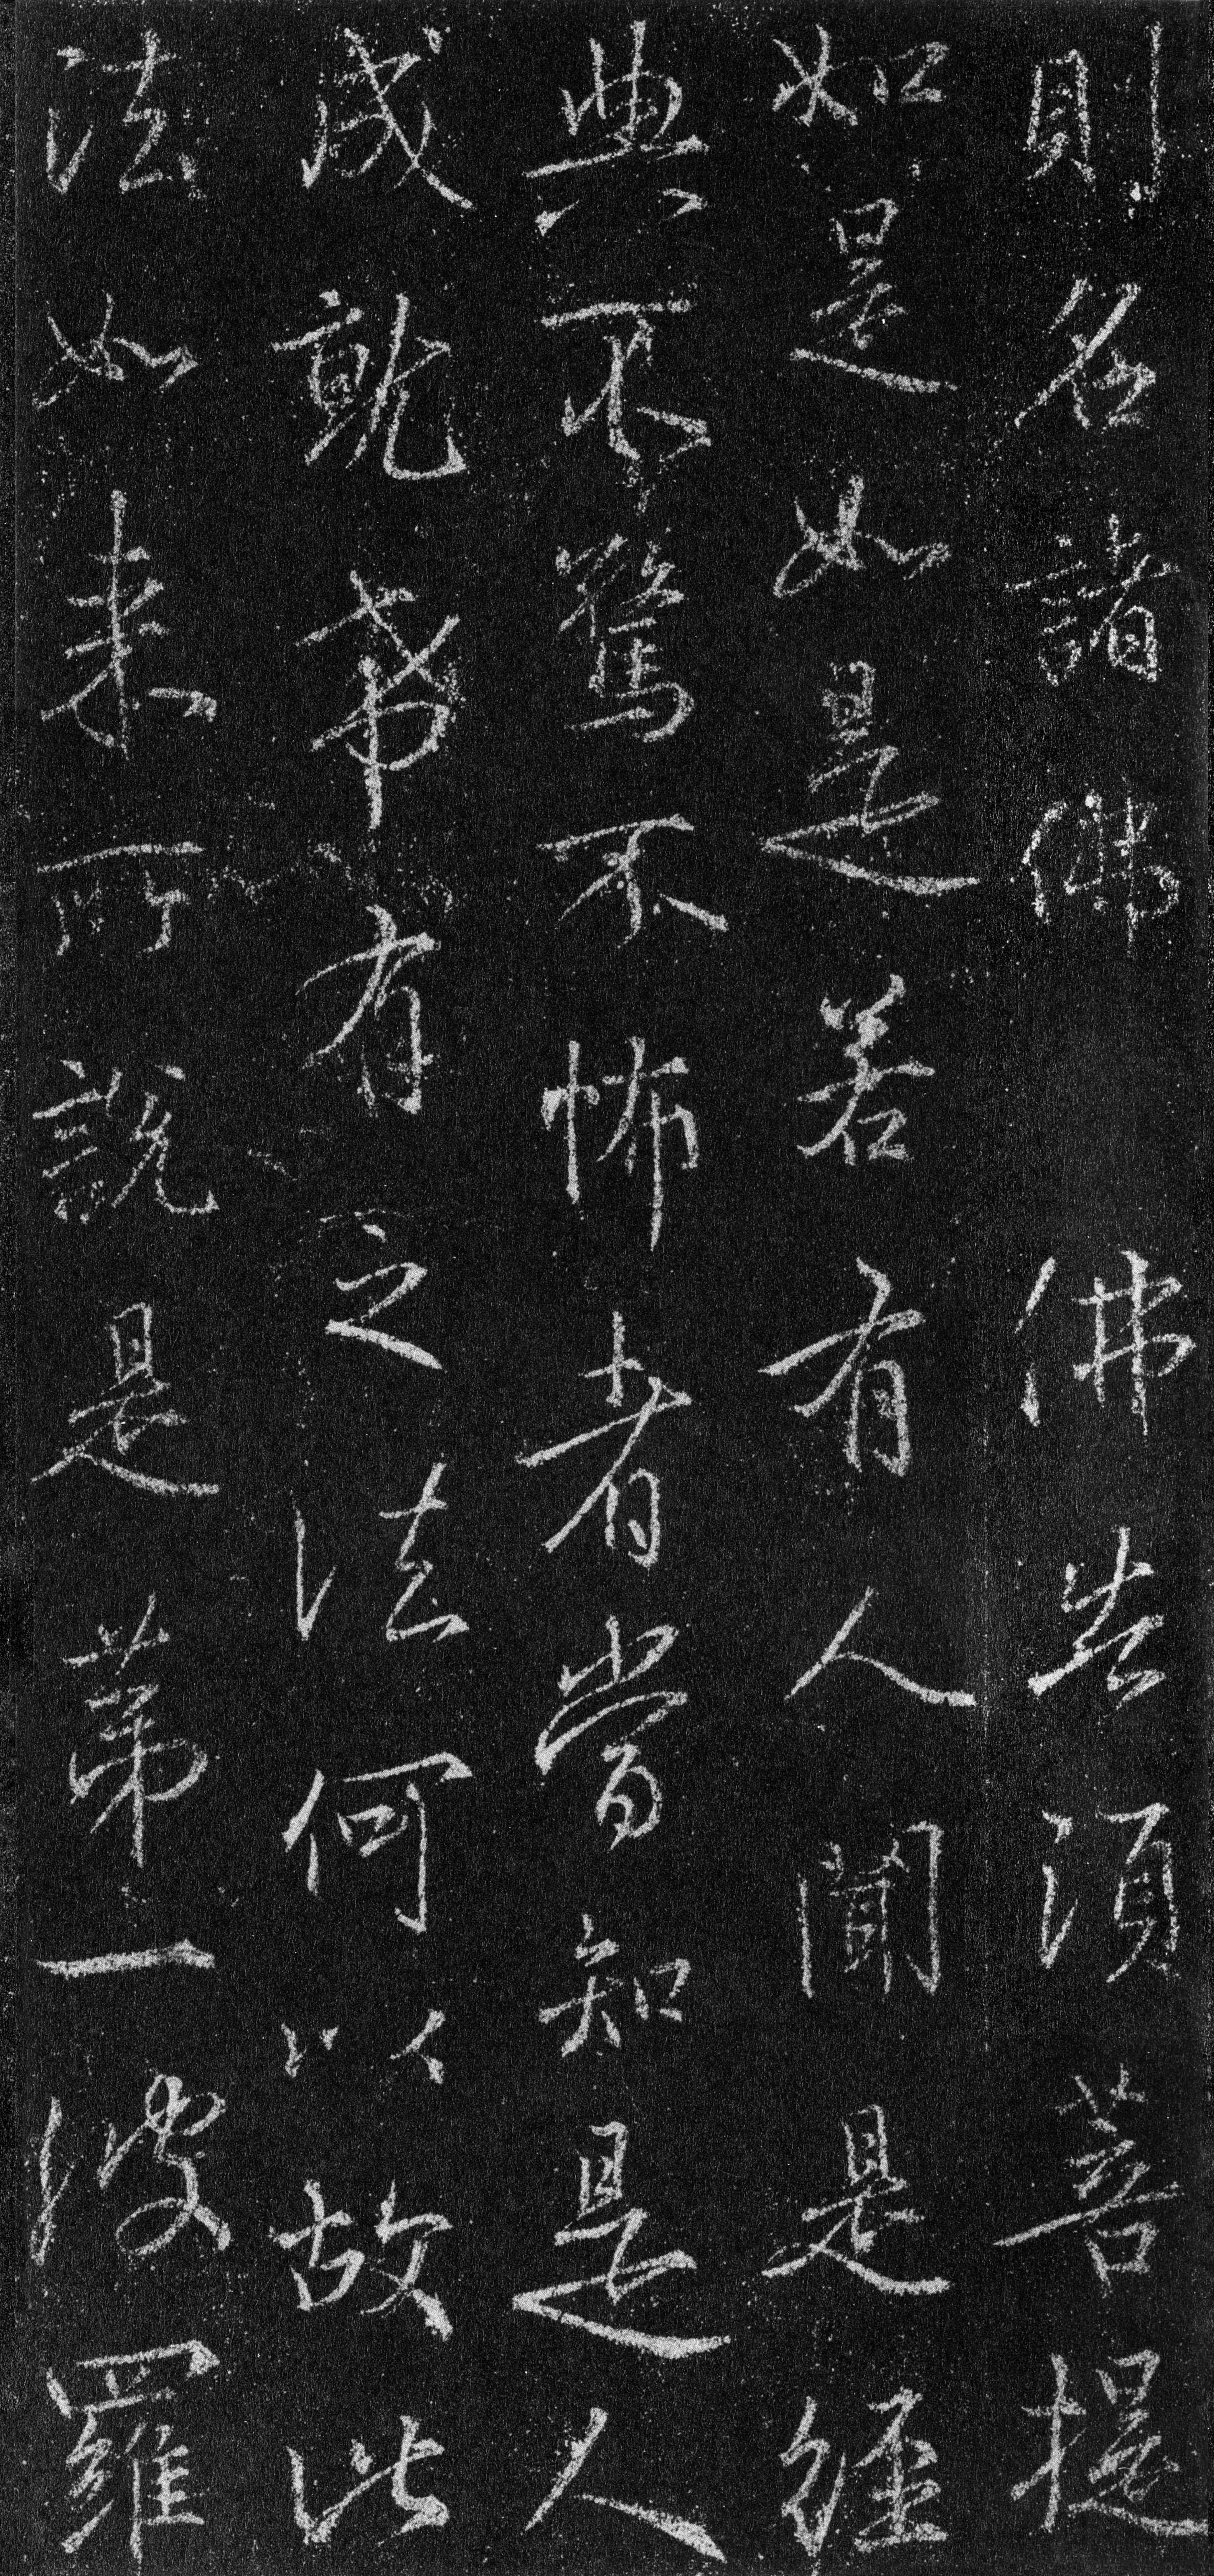 則名諸佛　佛告須菩提
如是如是若有人聞是經
典不驚不怖者當知是人
成就希有之法何以故此
法如来所說是第一波羅